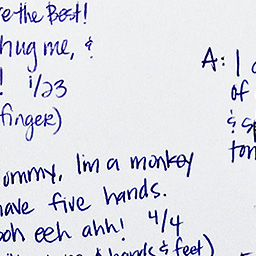 the Best!
hug me, &
! 1/23
finger)
A: I
of
&
ommy, I'm a monkey
have five hands.
ooh eeh ahh! 4/4
hands & feet)